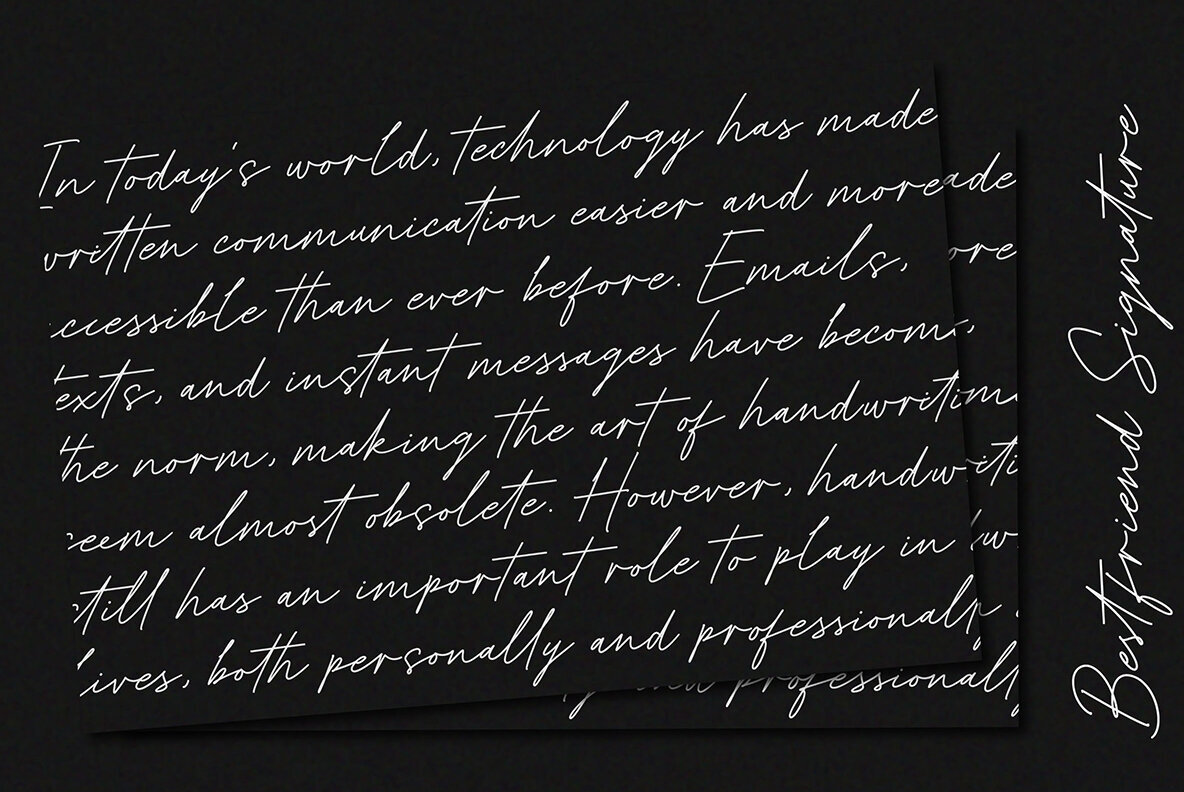 In today's world, technology has made
written communication easier and more
ccessible than ever before. Emails,
texts, and instant messages have become
the norm, making the art of handwriting
seem almost obsolete. However, handwriti
still has an important role to play in
lives, both personally and professionall
ade
ore
professionally
Bestfriend Signature